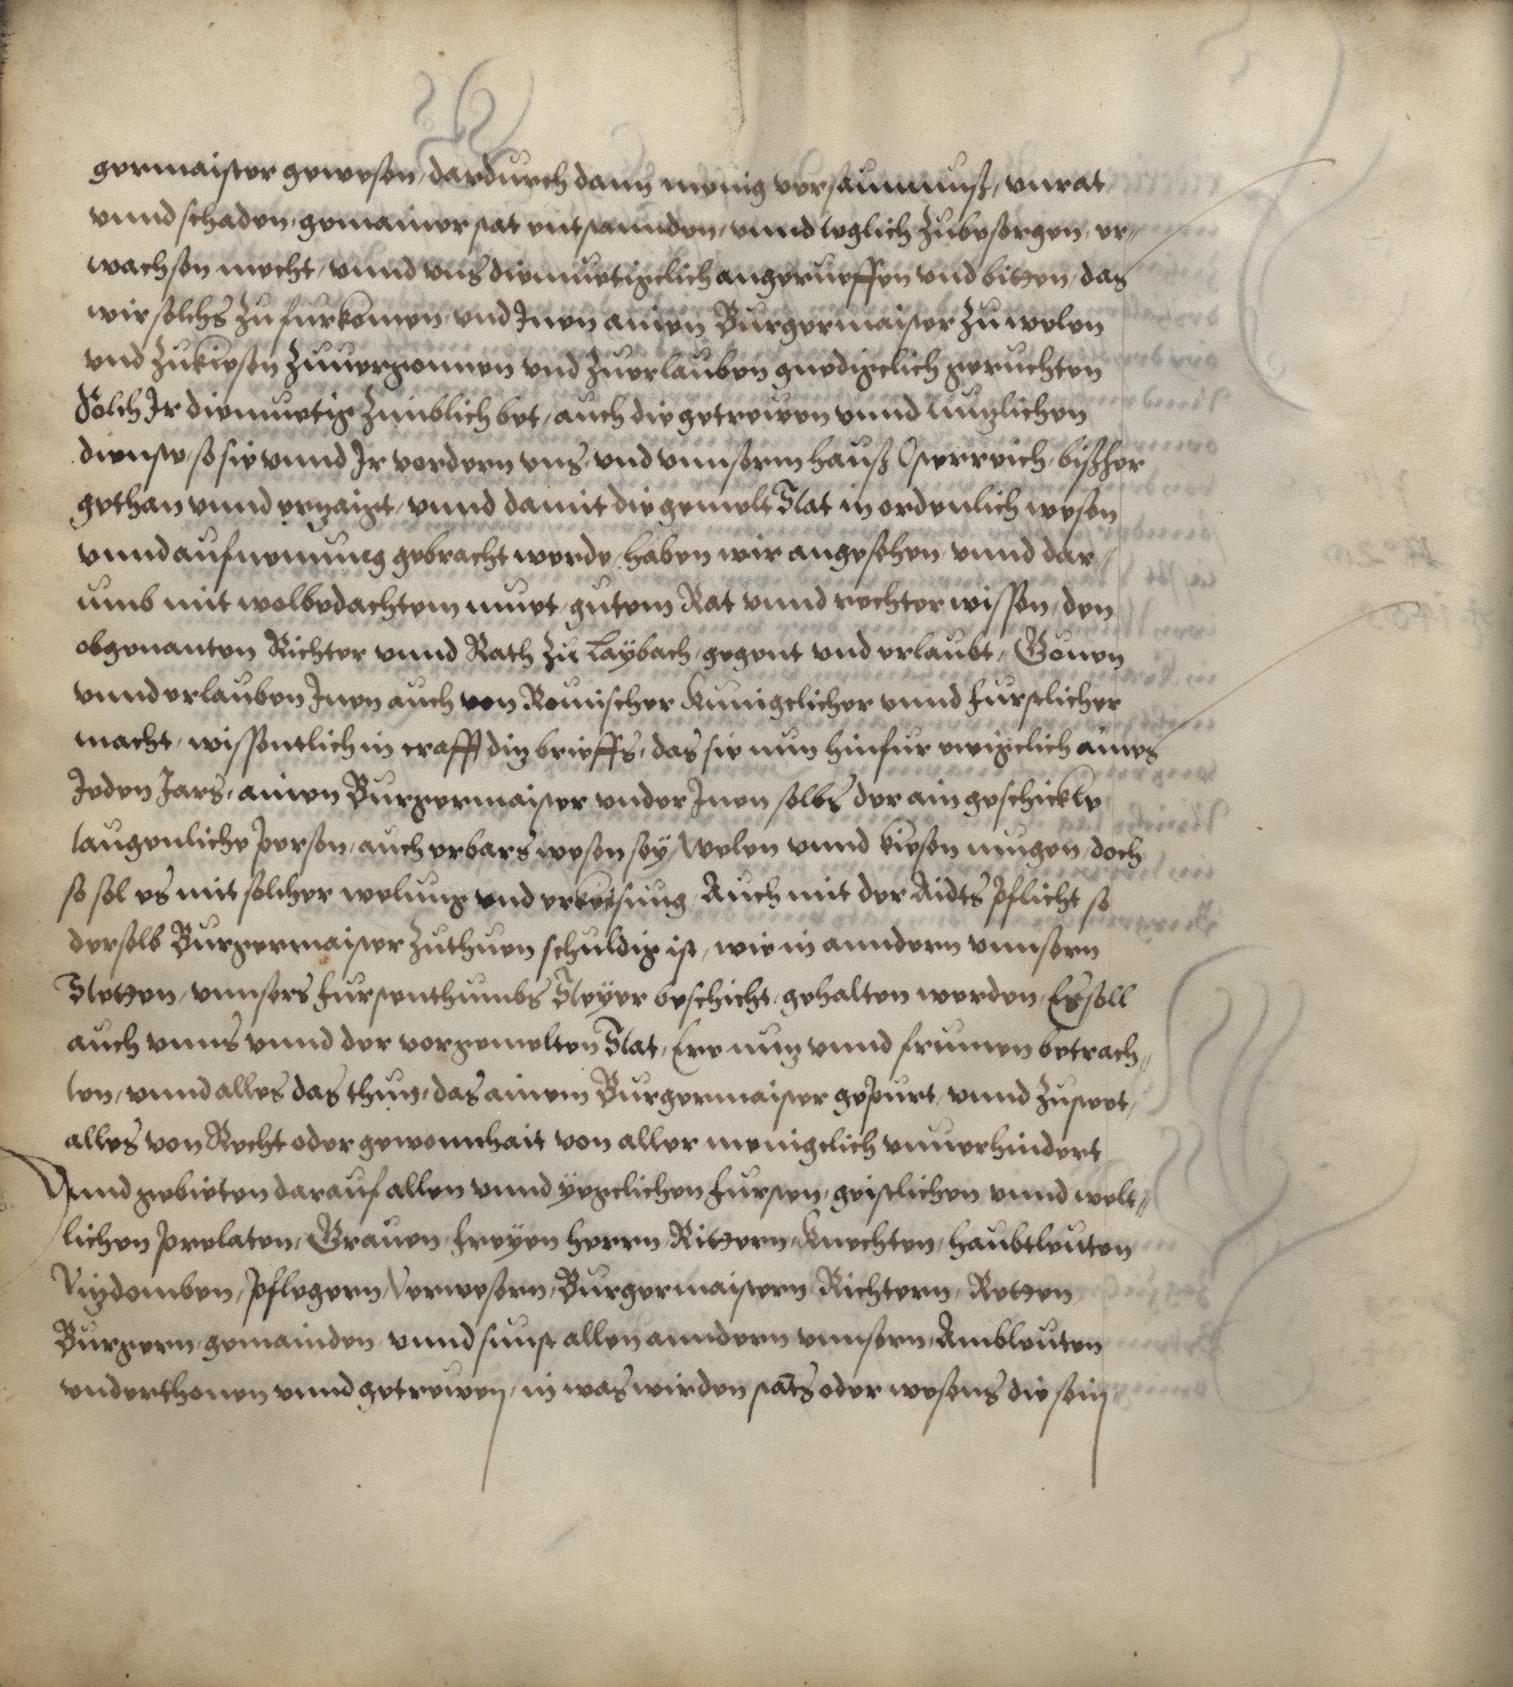 germaister gewesen, dardurch dann menig versaumnuß, vnrat
vnnd schaden, gemainer stat entstannden, vnnd teglich zubesorgen, er„
wachsen mecht, vnnd vns diemuetigclich angerueffen vnd bitten, das
wir solchs zu furkomen, vnd Inen ainen Burgermaister zu welen
vnd zukiesen zuuergonnen vnd zuerlauben gnedigclich geruchten
Solch Ir diemuetig zimblich bet, auch die getrewen vnnd nutzlichen
dienste, so sie vnnd Ir vordern vns, vnd vnnserm hauß Osterreich, bißher
gethan vnnd ertzaigt, vnnd damit die gemelt Stat in ordenlich wesen
vnnd aufnemung gebracht werde, haben wir angesehen, vnnd dar„
umb mit wolbedachtem muet, gutem Rat vnnd rechter wissen, den
obgenanten Richter vnnd Rath zu Laybach, gegent vnd erlaubt, Gonen
vnnd erlauben Inen auch von Romischer Kunigclicher vnnd furstlicher
macht, wissentlich in crafft ditz brieffs, das sie nun hinfur ewigclich aines
Jeden Jars, ainen Burgermaister vnder Inen selbs der ain geschickte
taugenliche Person, auch erbars wesen sey, welen vnnd kiesen mugen, doch
so sol es mit solcher welung vnd erkiesung, Auch mit der Aidts Pflicht so
derselb Burgermaister zuthuen schuldig ist, wie in anndern vnnsern
Stetten, vnnsers furstenthumbs Steyer beschicht, gehalten werden, Er soll
auch vnns vnnd der vorgemelten Stat, Ere nutz vnnd frumen betrach„
ten, vnnd alles das thun, das ainem Burgermaister gepurt, vnnd zusteet,
alles von Recht oder gewonnhait von aller menigclich vnuerhindert
Vnnd gebieten darauf allen vnnd yegclichen fursten, geistlichen vnnd welt„
lichen Prelaten, Grauen, freyen herrn, Rittern, Knechten, haubtleuten
Vitzdomben, Pflegern, Verwesern, Burgermaistern, Richtern, Retten
Burgern, gemainden vnnd sunst allen anndern vnnsern, Ambtleuten
vnderthonen vnnd getrewen, in was wirden stats oder wesens die sein